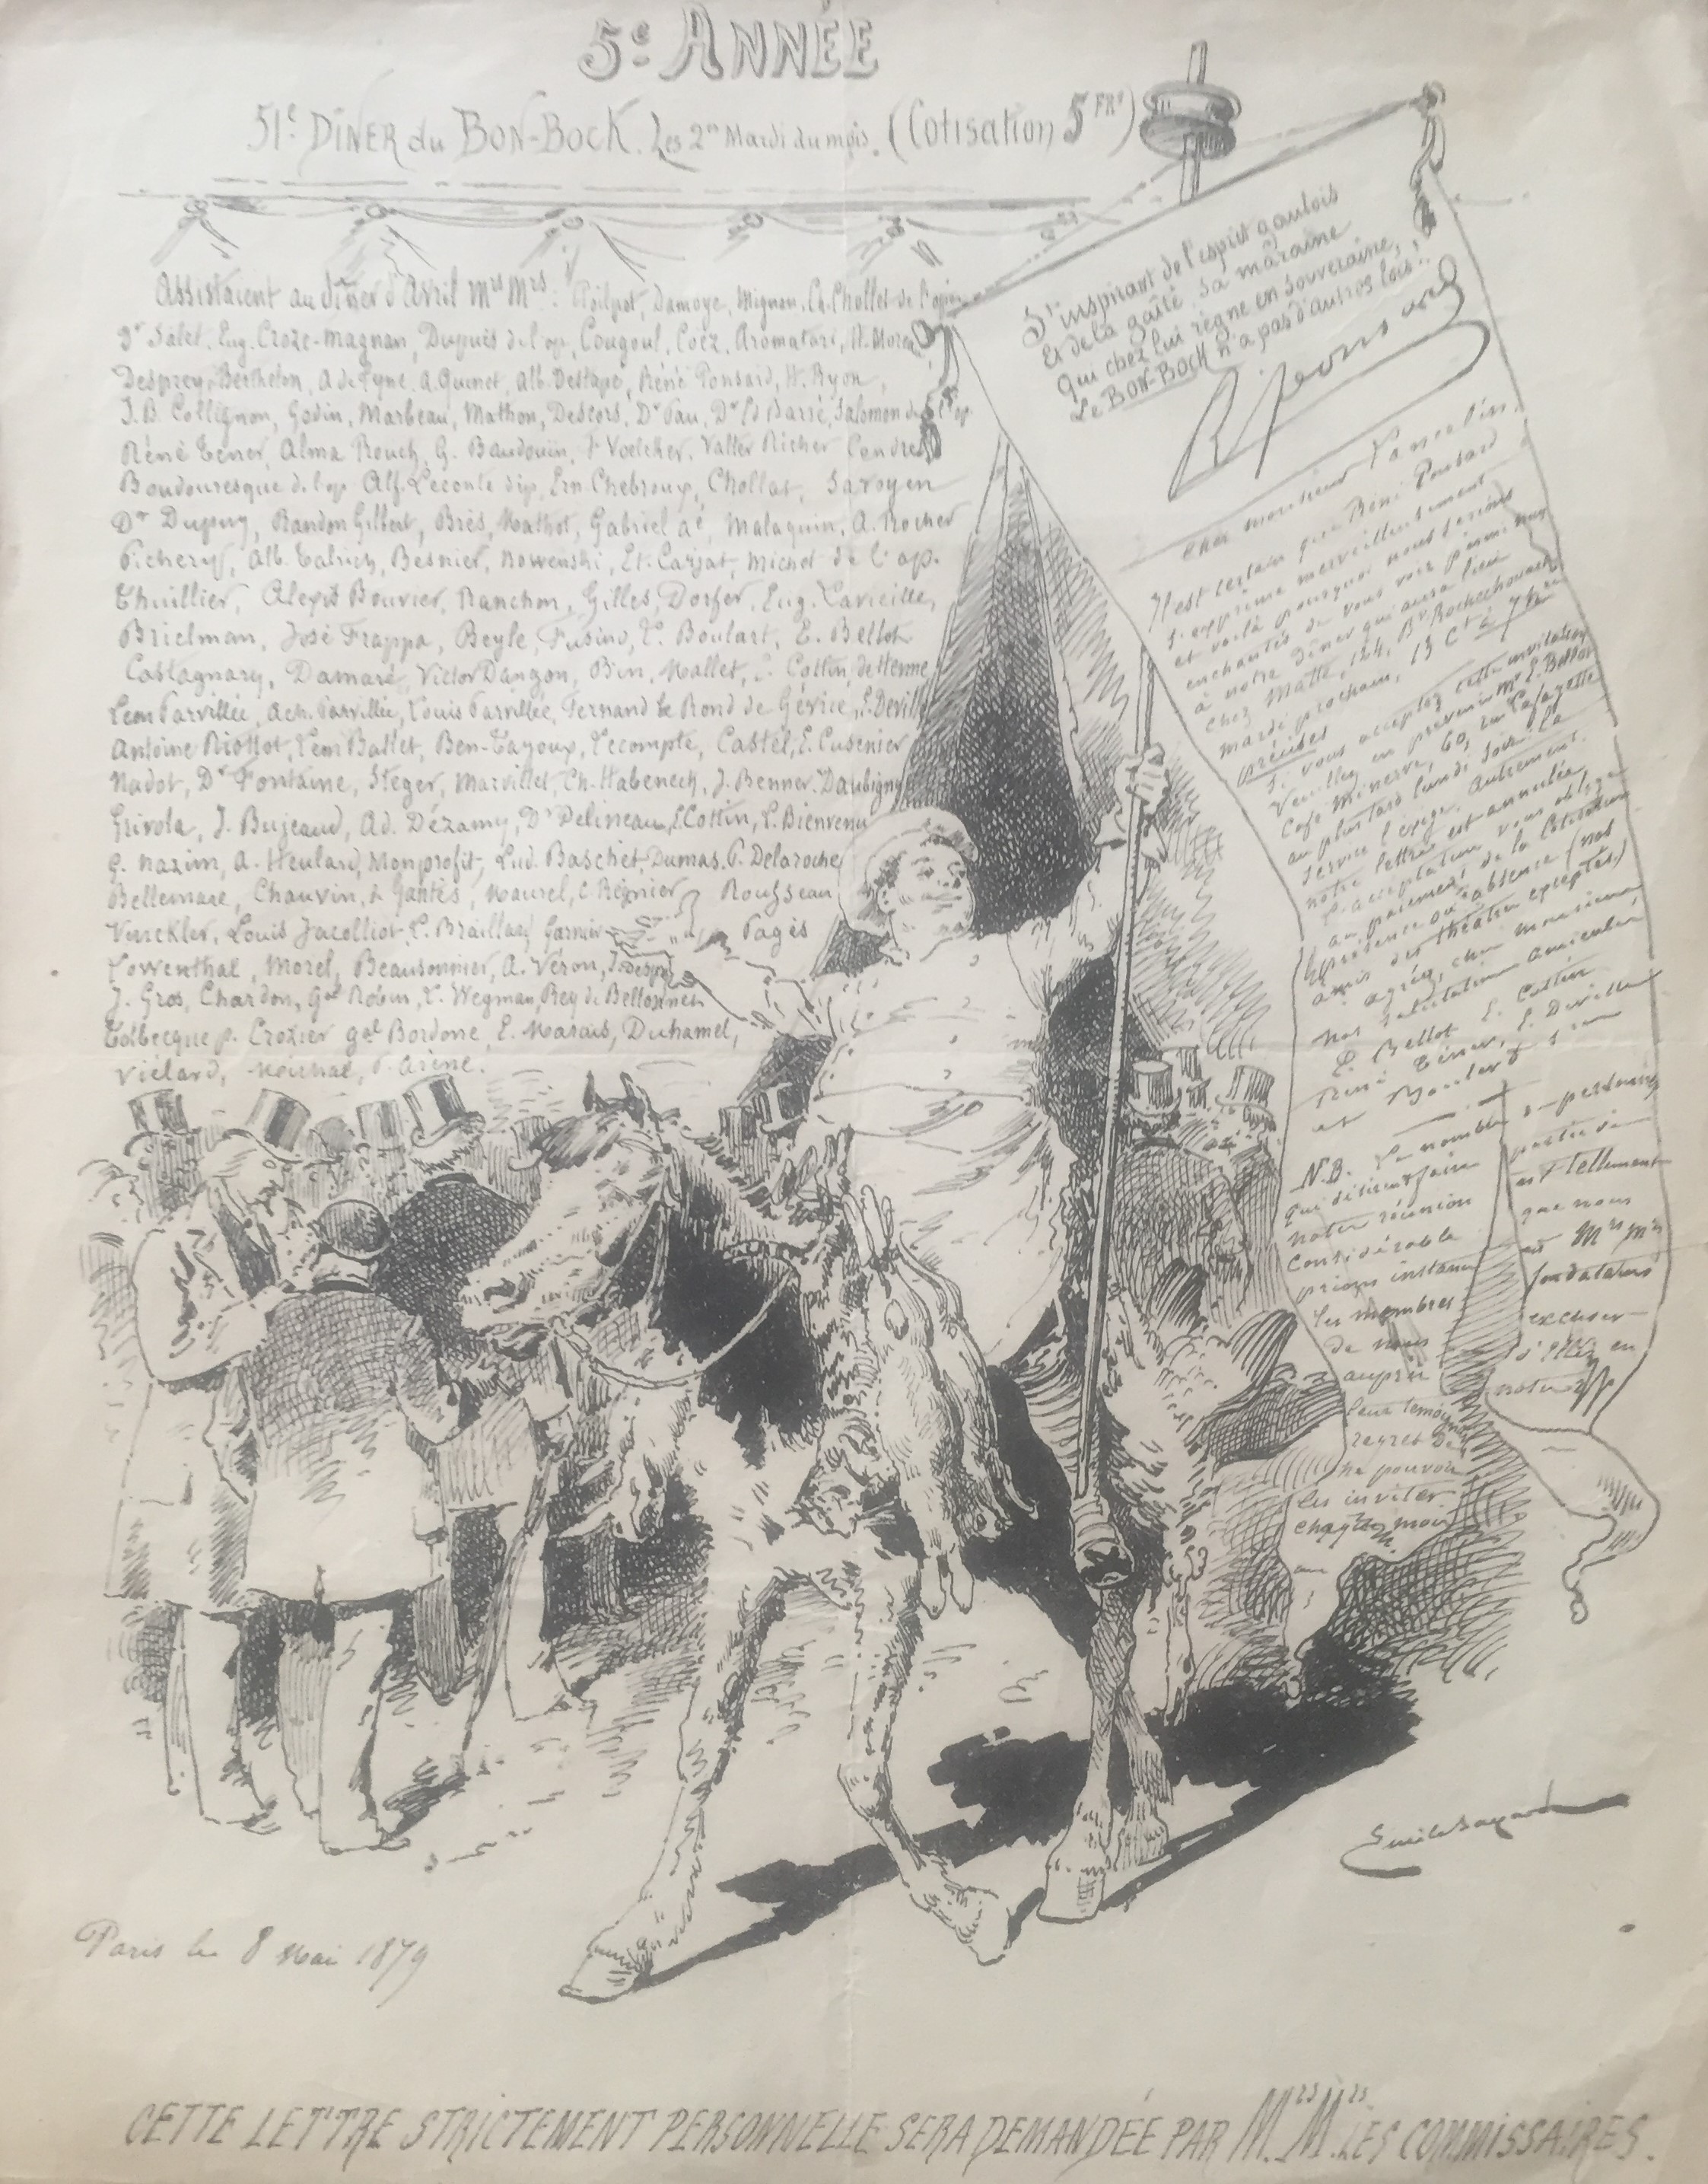 5e ANNÉE
51e DINER du BON-BOCK. Les 2me Mardi du mois. (Cotisation 5 FRs)
Assistaient au dîner d'Avril Mrs Mrs : Poilpot, Damoye, Mignon, Ch. Chollet de l'opéra
Dr Salet, Eug. Croze-Magnan, Dupuis de l'op, Cougoul, Coëz, Aromatari, H. Moreau
Desprey, Berthelon, A. Quinet, Alb. Destape, Réné Ponsard, H. Ryon,
J.B. Collignon, Godin, Marbeau, Mathon, Descors, Dr Pau, Dr Ed Barré, Salomon de l'op.
Réné Tener, Alma Rouch, G. Baudouin, F. Voelcher, Valter Richer
Boudouresque de l'op Alf. Leconte dip, Ern. Chebroux, Chollat, Savoyen
Dr Dupuy, Randon Gilbert, Brès, Mathot, Gabriel aé, Malaquin, A. Rocher
Pichery, Alb. Talrich, Besnier, Nowenski, Et. Carjat, Michot de l'op.
Thuillier, Alexis Bouvier, Ranchon, Gilles, Dorfer, Eug. Lavieille,
Brielman, José Frappa, Beyle, Fusino, E. Boulart, E. Bellot
Castagnary, Damaré, Victor Danzon, Bin, Mallet, Cottin, de Henne
Léon Parvillée, Ach. Parvillée, Louis Parvillée, Fernand le Rond de Gévrie, E. Deville
Antoine Riottot, Léon Ballet, Ben-Tayoux, Lecompte, Castel, E. Cusenier
Nadot, Dr Fontaine, Steger, Marvillet, Ch. Habeneck, J. Benner, Daubigny
Grivola, J. Bujeaud, Ad. Dézamy, Dr Delineau, E. Cottin, L. Bienvenu
G. Nazim, A. Heulard, Monprofit, Lud. Baschet, Dumas, P. Delaroche
Bellemare, Chauvin, de Gantès, Maurel, C. Régnier, Rousseau
Vinckler, Louis Jacolliot, E. Braillard, Garnier Pagès
Lowenthal, Morel, Beausonnier, A. Véron,
J. Gros, Chardon, Gal Robin, E. Wegman, Rey de Bellonnet
Tolbecque p. Crozier gal Bordone, E. Marais, Duhamel,
Viélard, P. Arène.
S'inspirant de l'esprit gaulois
Et de la gaîté, sa maraine
Qui chez lui règne en souveraine,
Le BON-BOCK n'a pas d'autres lois.
R. Ponsard
Cher monsieur Vancelin
Il est certain que Réné Ponsard
s'exprime merveilleusement
et voilà pourquoi nous serions
enchantés de vous voir parmi nous
à notre diner qui aura lieu
chez Matte, 124, Bd Rochechouart
mardi prochain, 13 Ct à 7h
précises
Si vous acceptez cette invitation
Veuillez en prévenir Mr E. Bellot
Café Minerve, 60, rue Lafayette
au plus tard lundi soir. Le
service l'exige. Autrement
notre lettre est annulée
L'acceptation vous oblige
au paiement de la Cotisation
(présence ou absence) (nos
amis des théâtres exceptés)
agréez, cher monsieur
nos salutations amicales
E. Bellot E. Cottin
René Tener, E. Deville
et Boulart
N.B. Le nombre de personnes
qui désirent faire partie de
notre réunion est tellement
considérable que nous
prions instamment Mrs Mrs
les membres fondateurs
de nous excuser
auprès d'elles en
leur témoignant notre
regret de
ne pouvoir
les inviter
chaque mois
Emile Bayard
Paris le 8 Mai 1879
CETTE LETTRE STRICTEMENT PERSONNELLE SERA DEMANDÉE PAR M.rs M.rs LES COMMISSAIRES.